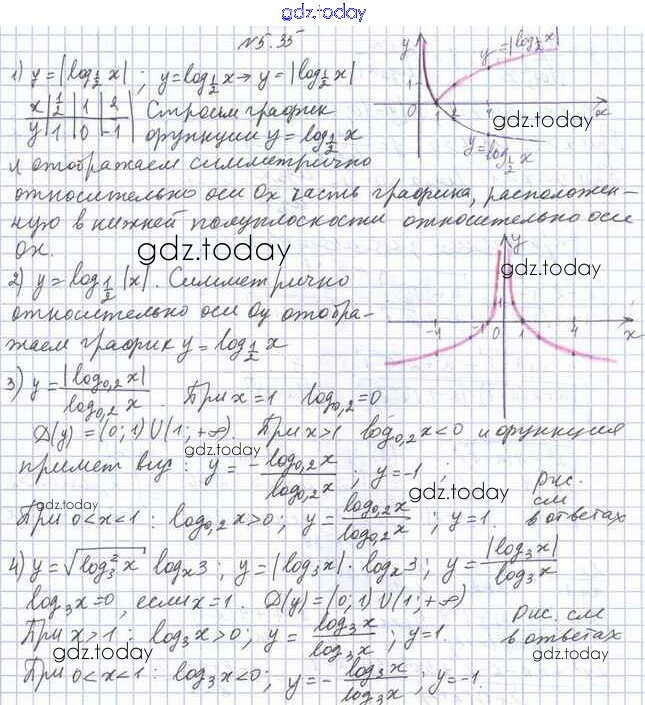 gdz.today
№5.35
1) y=|log_{1/2} x|; y=log_{1/2} x → y=|log_{1/2} x|
y
y=|log_{1/2} x|
x | 1/2 | 1 | 2 | Строим график
y | 1 | 0 | -1 | функции y=log_{1/2} x
1
0 1 2 4 x
gdz.today
y=log_{1/2} x
и отображаем симметрично
относительно оси Ox часть графика, расположен-
ную в нижней полуплоскости относительно оси
Ox.
gdz.today
2) y=log_{1/2} |x|. Симметрично
относительно оси Oy отобра-
жаем график y=log_{1/2} x
y
gdz.today
1
-1 0 1 4 x
3) y=|log_{0,2} x|/log_{0,2} x. При x=1 log_{0,2}=0
D(y)=(0;1)∪(1;+∞). При x>1 log_{0,2} x<0 и функция
gdz.today
примет вид: y=-log_{0,2} x/log_{0,2} x; y=-1;
Рис.
gdz.today
gdz.today
см
При 0<x<1: log_{0,2} x>0; y=log_{0,2} x/log_{0,2} x; y=1.
в ответах
4) y=√(log_3^2 x) log_x 3; y=|log_3 x|·log_x 3; y=|log_3 x|/log_3 x
log_3 x=0, если x=1. D(y)=(0;1)∪(1;+∞)
Рис. см
При x>1: log_3 x>0; y=log_3 x/log_3 x; y=1.
в ответах
gdz.today
gdz.today
gdz.today
При 0<x<1: log_3 x<0; y=-log_3 x/log_3 x; y=-1.